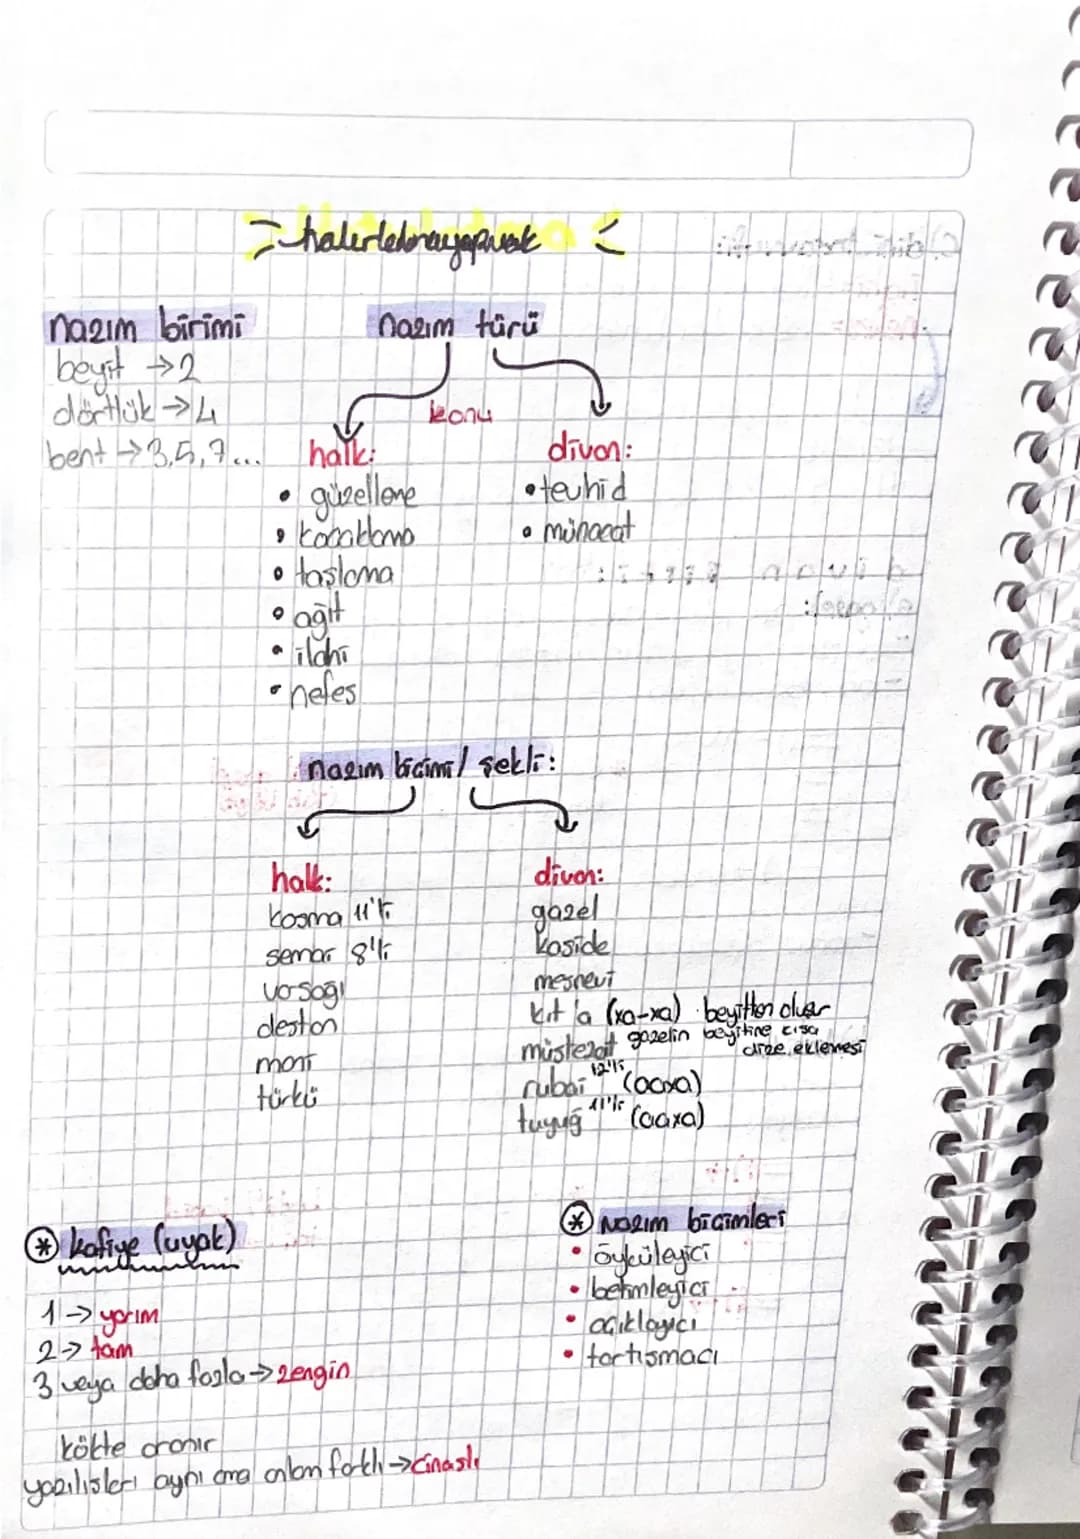 nazım birimi
beyit → 2
dörtlük → 4
bent → 3,5,7...
nazım türü
konu
halk:
• güzelleme
• koçaklama
• taşlama
• ağıt
• ilahi
• nefes
divan:
• tevhid
• münacat
nazım biçimi / şekli:
halk:
koşma 11'li
semai 8'li
varsağı
destan
mani
türkü
divan:
gazel
kaside
mesnevi
kıt'a (xa-xa) beyitten oluşur
müstezat gazelin beyitine kısa
dize eklemesi
rubai 12'li (aaxa)
tuyuğ 11'li (aaxa)
* kafiye (uyak)
1 → yarım
2 → tam
3 veya daha fazla → zengin
kökte aranır
yazılışları aynı ama anlam farklı → cinaslı
* Nazım biçimleri
• öyküleyici
• betimleyici
• açıklayıcı
• tartışmacı